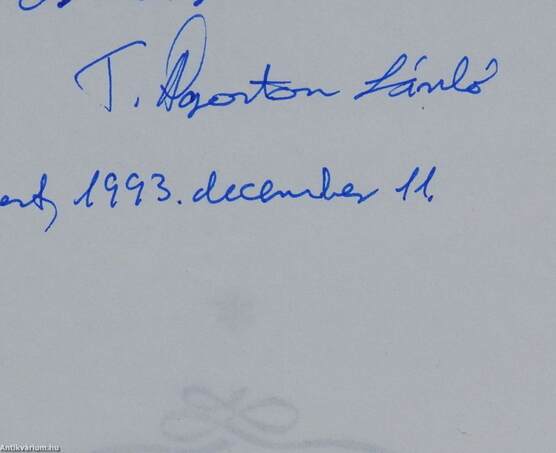 T. Ágoston László
1993. december 11.
Antikvárium.hu